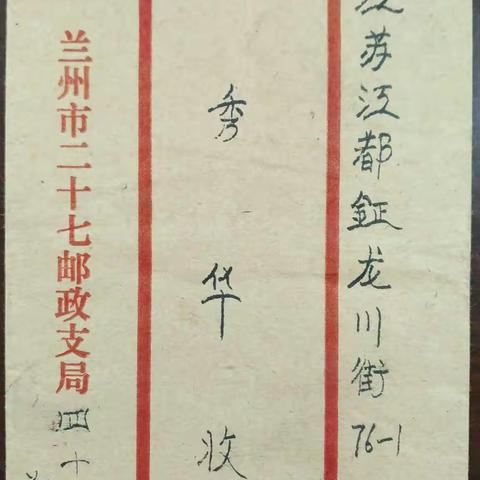 苏江都鉦龙川街76-1
秀华收
兰州市二十七邮政支局四十